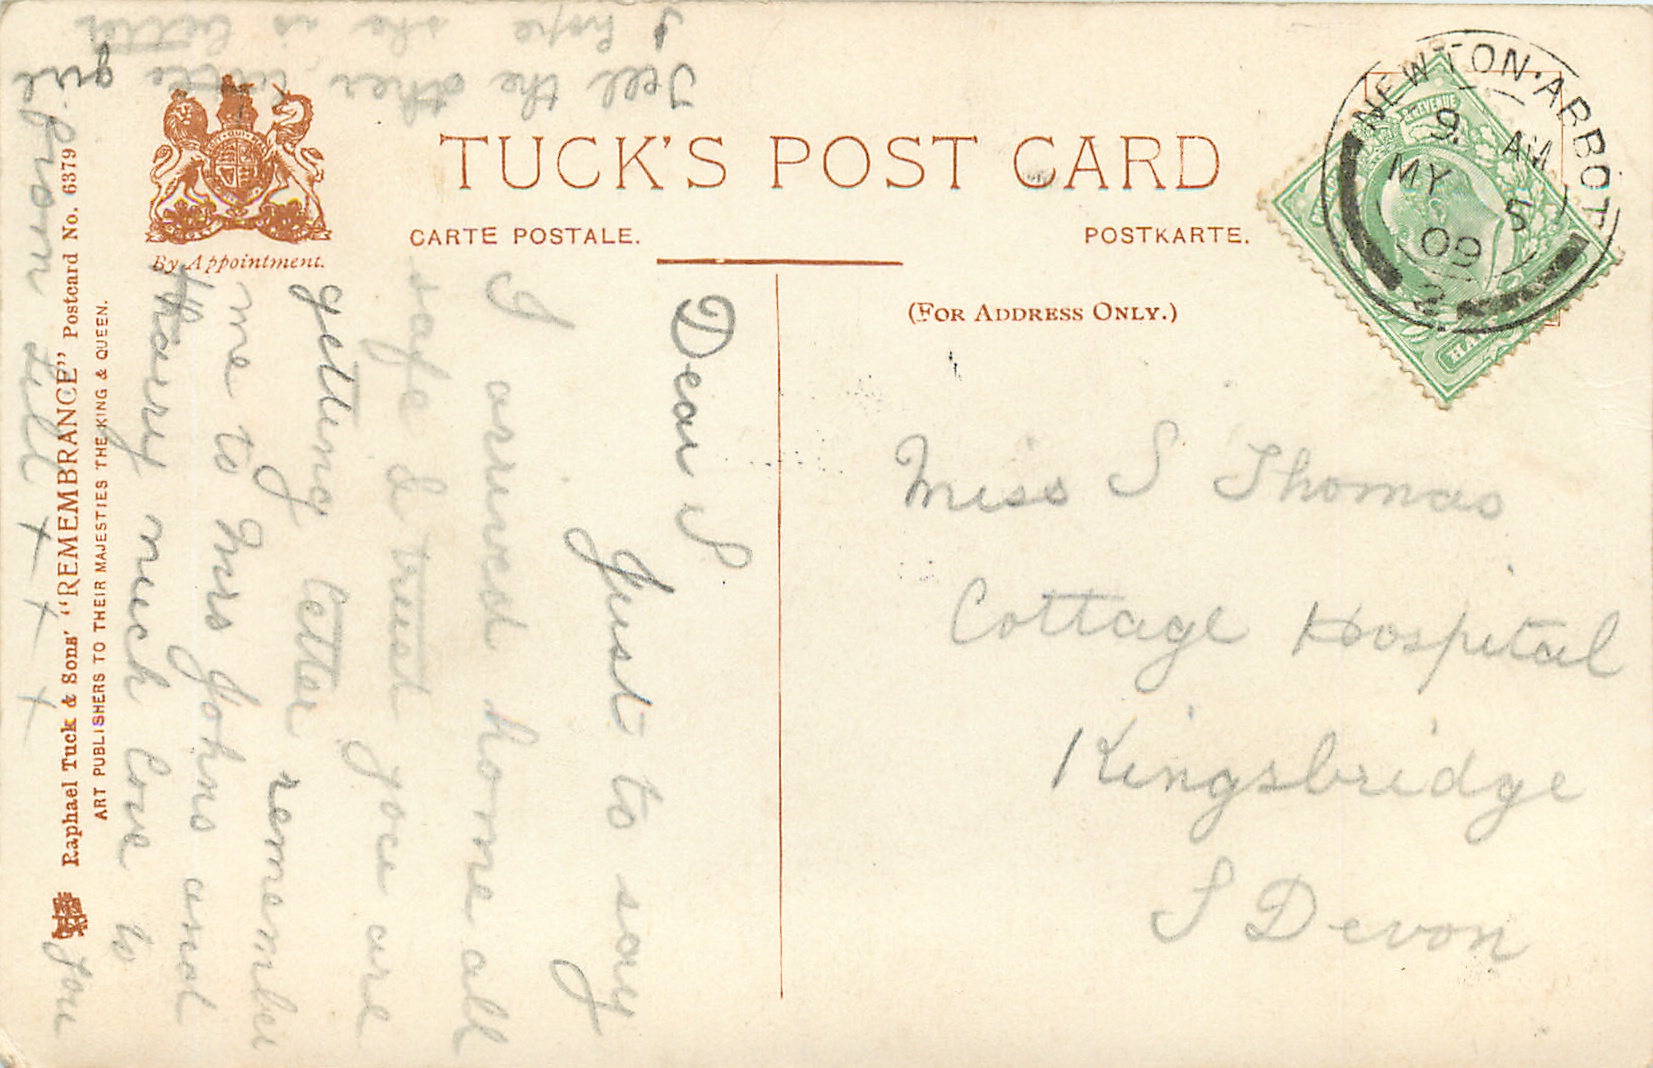 TUCK'S POST CARD
CARTE POSTALE.
POSTKARTE.
(FOR ADDRESS ONLY.)
By Appointment.
Raphael Tuck & Sons' "REMEMBRANCE" Postcard No. 6379
ART PUBLISHERS TO THEIR MAJESTIES THE KING & QUEEN.
NEWTON·ABBOT
9. AM
MY 5
09
2
REVENUE
Miss S Thomas
Cottage Hospital
Kingsbridge
S Devon
Dear S
Just to say
I arrived home all
safe & trust you are
getting better remember
me to Mrs Johns and
Harry much love to
you
from Lill + + +
Tell the other little girl
I hope she is better